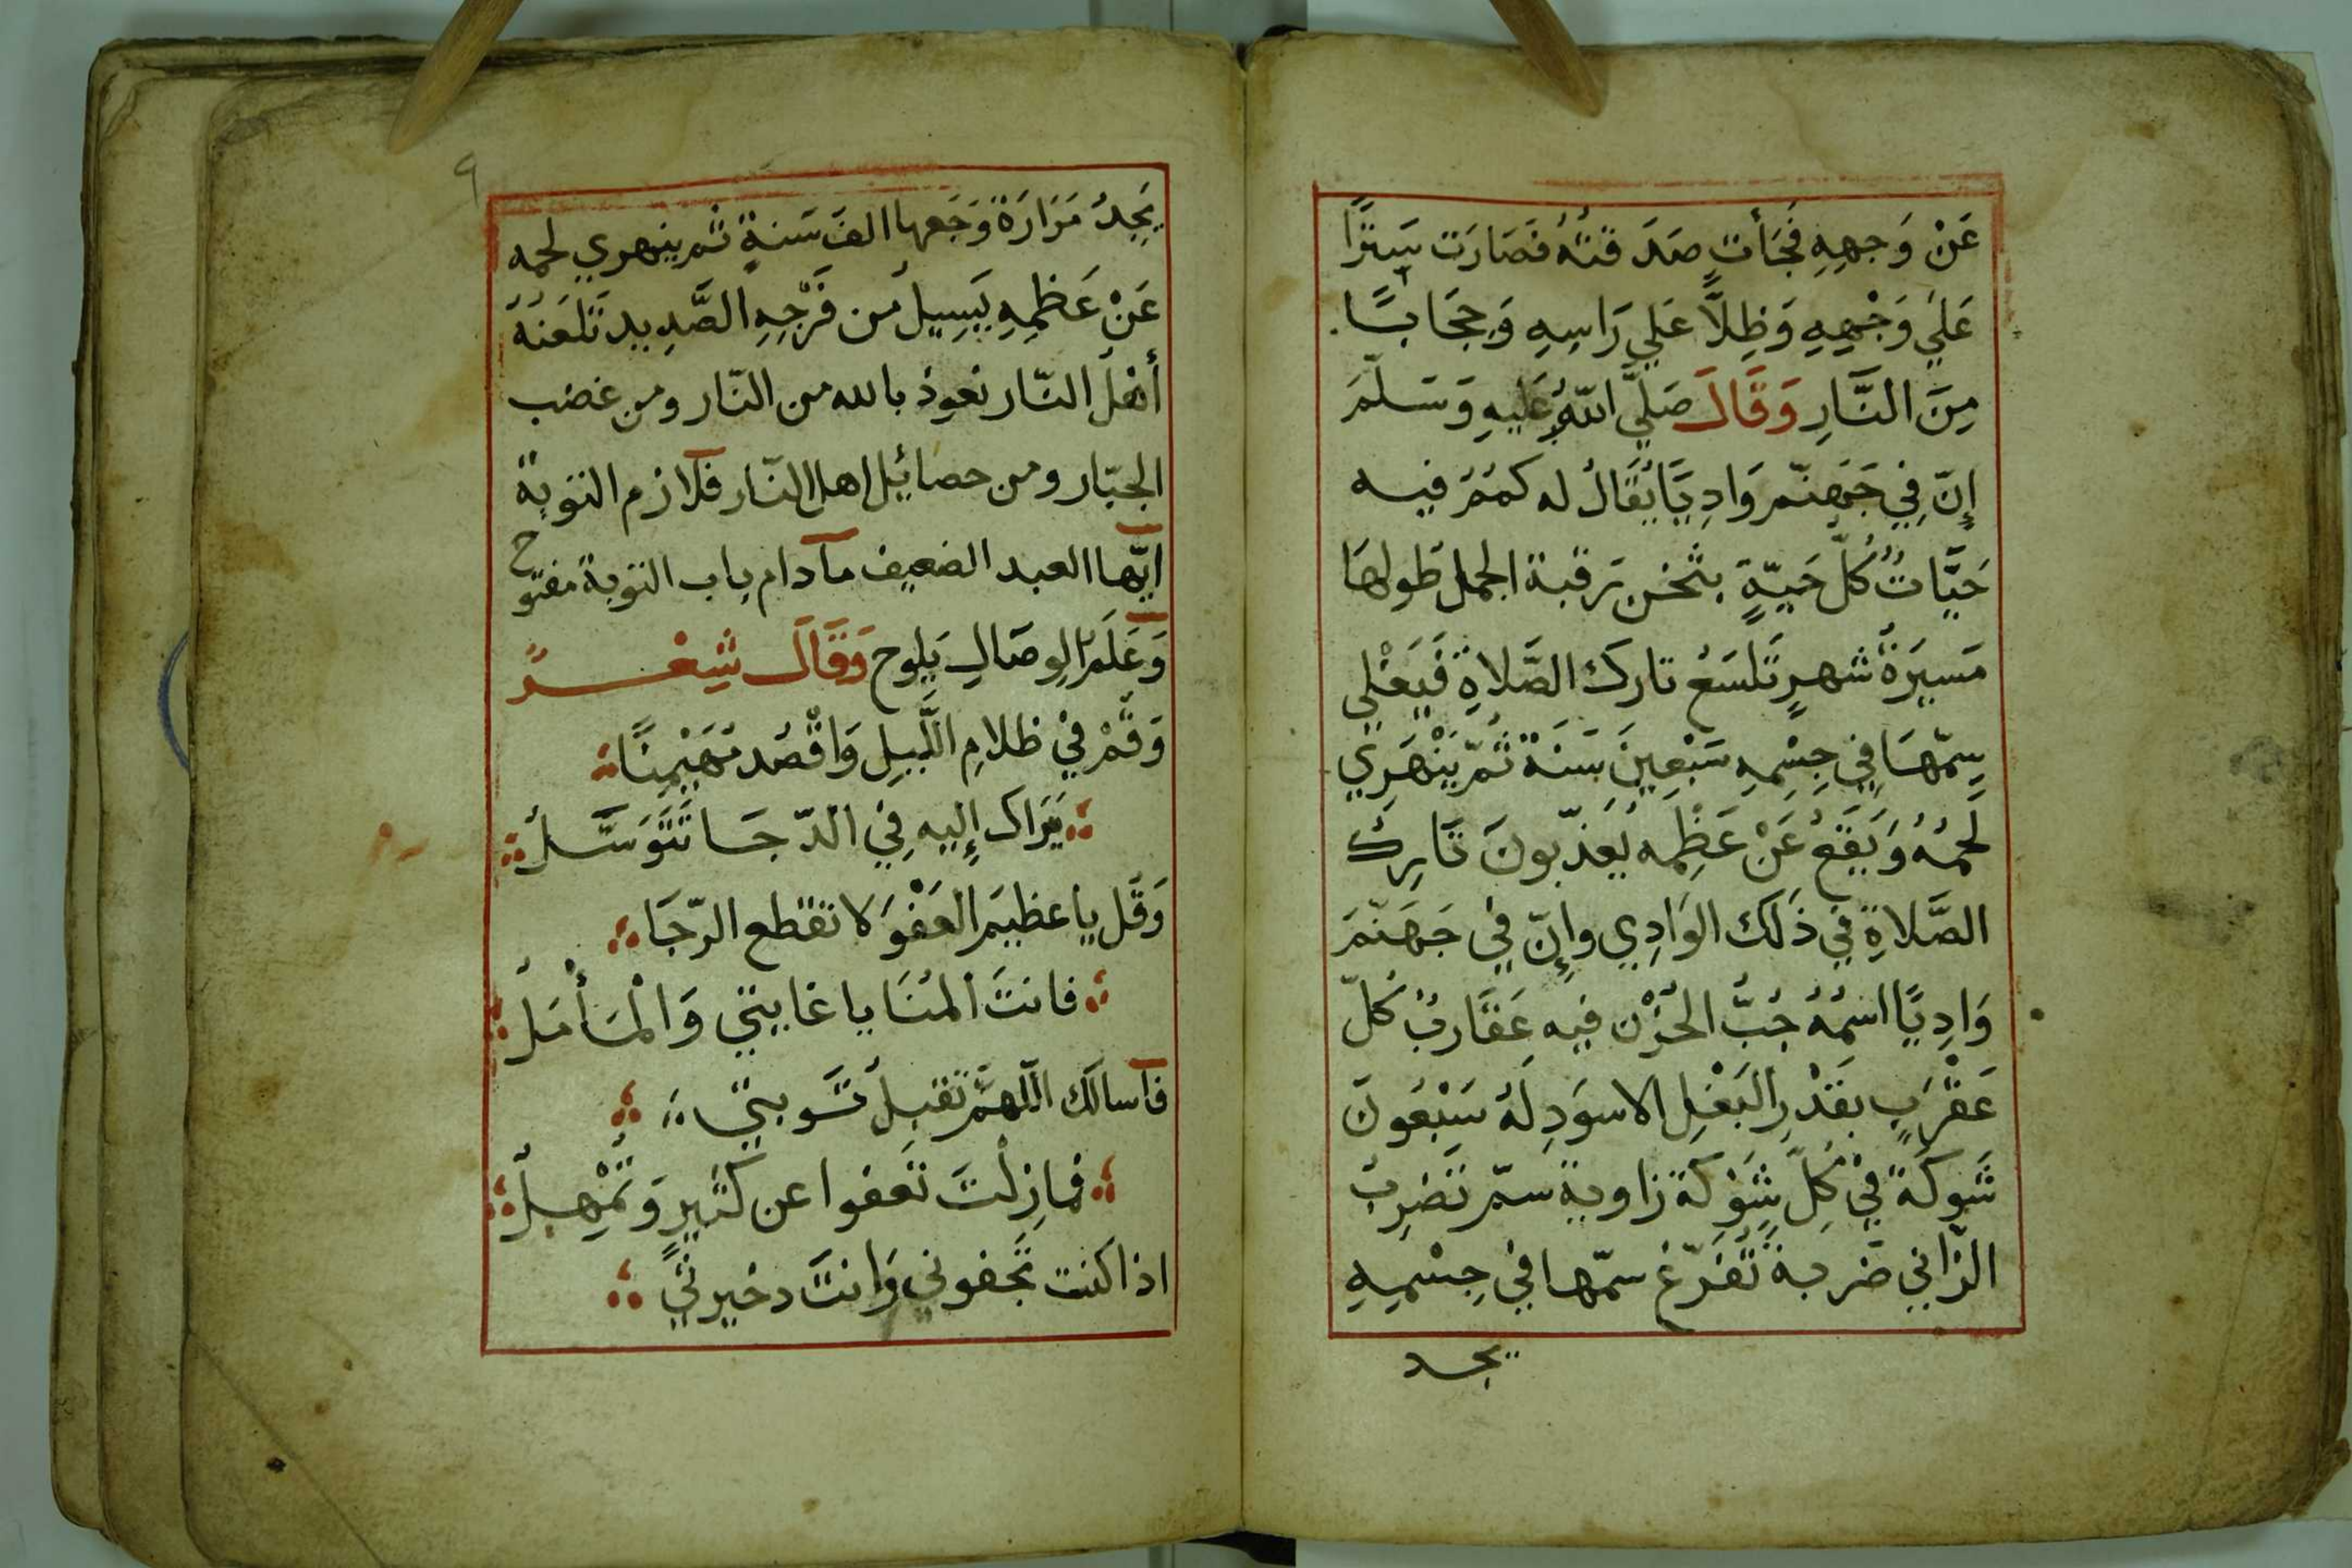 عَنْ وَجهِهِ فَجَأت صَدَقتهُ فَصَارَت سِترًا
عَلَي وَجْهِهِ وَظِلاًّ عَلي رَاسِهِ وَحِجَابًا
مِنَ النَّارِ وَقَالَ صَلَّي اللّهُ عَليهِ وَسَلّمَ
إنّ فِي جَهنّم وَادِيًا يُقَالُ له كمثمُ فيه
حَيَّاتٌ كُلّ حَيّةٍ بثخن رقبة الجمل طُولهَا
مَسيَرَةُ شهرٍ تَلسَعُ تارك الصَّلاةِ فَيَغْلي
سِمّهَا فِي جِسْمِهِ سَبْعِينَ سَنَة ثُمّ يَنْهَرِي
لَحمُهُ وَيَقَعُ عَنْ عَظِمه يُعَذّبونَ تَارِكُ
الصَّلاةِ في ذَلك الوَادِي وإنّ في جَهَنّمَ
وَادِيًا اسمُهُ جُبُّ الحُزْن فيه عَقَاربٌ كُلّ
عَقْرَبٍ بقَدْرِ البَغْلِ الاسوَدِ لَهُ سَبْعُونَ
شَوكَةً فيْ كلِّ شَوْكَة زاوية سمّ تَضرِبُ
الزّاني ضَربة تَفَرّغ سمّها في جِسْمِهِ
يجد
٩
يَجِدُ مَرَارَةَ وَجَعها الفَ سَنةٍ ثم ينهري لحمه
عَنْ عَظمِهِ يَسِيل من فَرْجِهِ الصَّدِيد تَلعَنهُ
أهلُ النّار نعوذ بالله من النّار ومن غضب
الجبّار ومن حصائيل اهل النّار فلازم التوبة
ايّها العبد الضعيف مادام باب التوبة مفتوح
وَعَلَمُ الوِصَالِ يَلوح وَقَالَ شِعْرً
وَقُمْ فيْ ظلامِ اللَّيلِ وَاقْصُد مُهَيْمِنًا
يَرَاك إلِيه فِي الدّجَا تَتَوَسَّلُ
وَقُل يا عظيمَ العَفْوَ لا تقطع الرّجَا
فانتَ الْمُنَا يا غايتي وَالْمَأْمَلُ
فاسالك اللّهمَّ تقبل تَوبتي
فمازِلْتَ تَعفوا عن كَثيرٍ وَتُمْهِلُ
اذا كنت تَجفوني وَانتَ دخيرتي